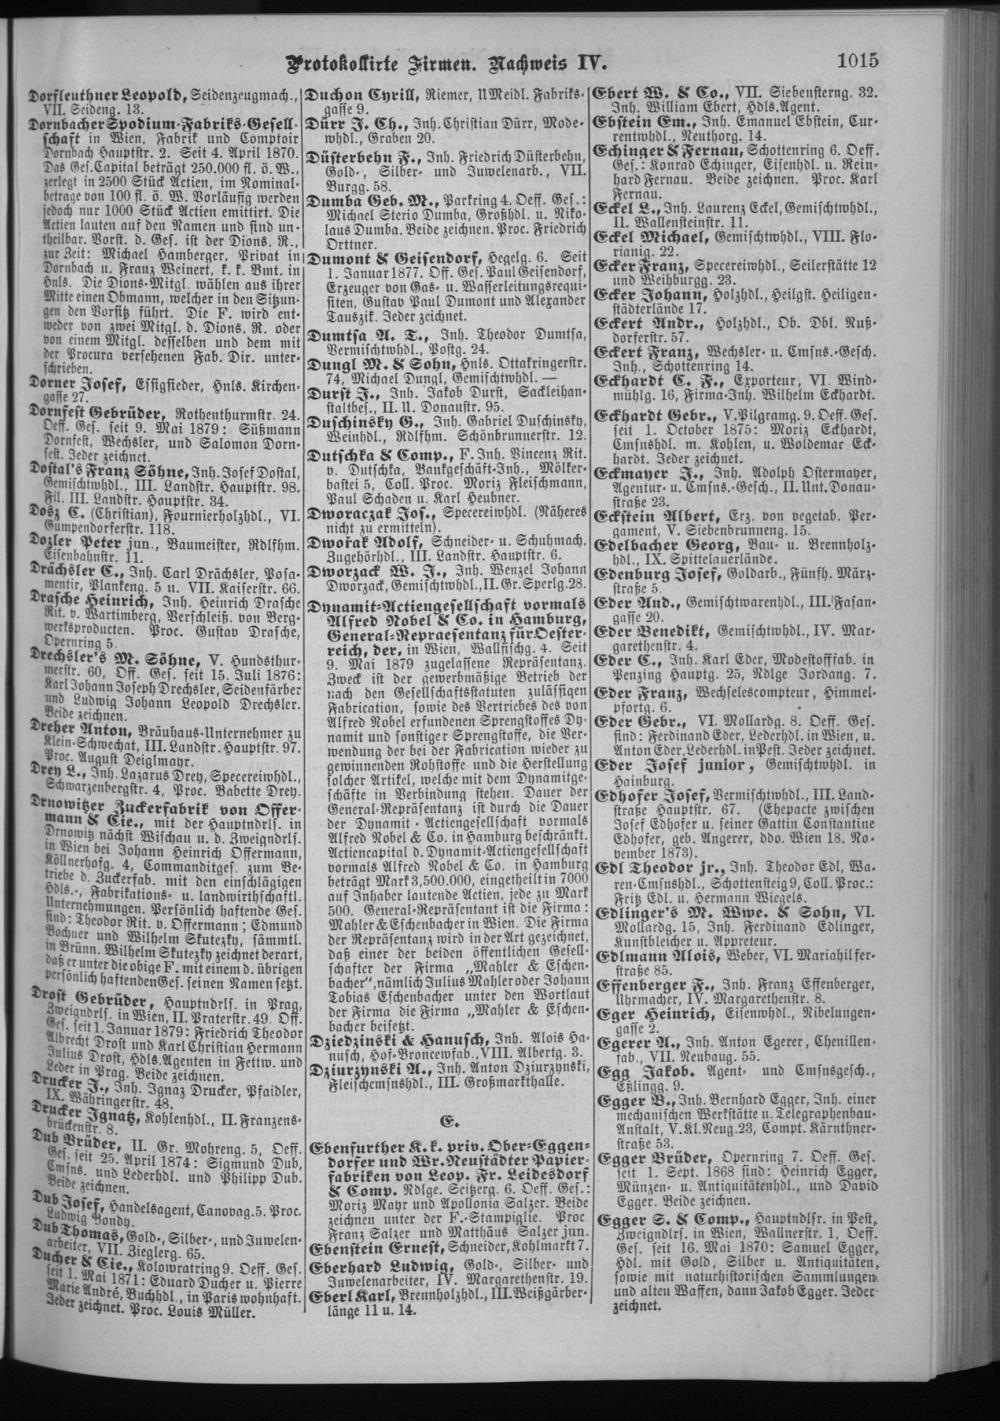 Protokollirte Firmen. Nachweis IV.
1015
Dorfleuthner Leopold, Seidenzeugmach.,
VII. Seideng. 13.
Dornbacher Spodium-Fabriks-Gesell-
schaft in Wien, Fabrik und Comptoir
Dornbach Hauptstr. 2. Seit 4. April 1870.
Das Ges. Capital beträgt 250.000 fl. ö. W.,
zerlegt in 2500 Stück Actien, im Nominal-
betrage von 100 fl. ö. W. Vorläufig werden
jedoch nur 1000 Stück Actien emittirt. Die
Actien lauten auf den Namen und sind un-
theilbar. Vorst. d. Ges. ist der Dions. R.,
zur Zeit: Michael Hamberger, Privat in
Dornbach u. Franz Weinert, k. k. Bmt. in
Hnls. Die Dions-Mitgl. wählen aus ihrer
Mitte einen Obmann, welcher in den Sitzun-
gen den Vorsitz führt. Die F. wird ent-
weder von zwei Mitgl. d. Dions. R. oder
von einem Mitgl. desselben und dem mit
der Procura versehenen Fab. Dir. unter-
schrieben.
Dorner Josef, Essigsieder, Hnls. Kirchen-
gasse 27.
Dornfest Gebrüder, Rothenthurmstr. 24.
Oeff. Ges. seit 9. Mai 1879: Süßmann
Dornfest, Wechsler, und Salomon Dorn-
fest. Jeder zeichnet.
Dostal's Franz Söhne, Inh. Josef Dostal,
Gemischtwhdl., III. Landstr. Hauptstr. 98.
Fil. III. Landstr. Hauptstr. 34.
Dosz C. (Christian), Fournierholzhdl., VI.
Gumpendorferstr. 118.
Dozler Peter jun., Baumeister, Rdlfhm.
Eisenbahnstr. 11.
Drächsler C., Inh. Carl Drächsler, Posa-
mentir, Plankeng. 5 u. VII. Kaiserstr. 66.
Drasche Heinrich, Inh. Heinrich Drasche
Rit. v. Wartimberg, Verschleiß. von Berg-
werksproducten. Proc. Gustav Drasche,
Opernring 5.
Drechsler's M. Söhne, V. Hundsthur-
merstr. 60, Off. Ges. seit 15. Juli 1876:
Karl Johann Joseph Drechsler, Seidenfärber
und Ludwig Johann Leopold Drechsler.
Beide zeichnen.
Dreher Anton, Bräuhaus-Unternehmer zu
Klein-Schwechat, III. Landstr. Hauptstr. 97.
Proc. August Deiglmayr.
Drey L., Inh. Lazarus Drey, Specereiwhdl.,
Schwarzenbergstr. 4, Proc. Babette Drey.
Drnowitzer Zuckerfabrik von Offer-
mann & Cie., mit der Hauptndrls. in
Drnowitz nächst Wischau u. d. Zweigndrls.
in Wien bei Johann Heinrich Offermann,
Köllnerhofg. 4, Commanditges. zum Be-
triebe d. Zuckerfab. mit den einschlägigen
Hdls.-, Fabrikations- u. landwirthschaftl.
Unternehmungen. Persönlich haftende Ges.
sind: Theodor Rit. v. Offermann; Edmund
Bochner und Wilhelm Skutezky, sämmtl.
in Brünn. Wilhelm Skutezky zeichnet derart,
daß er unter die obige F. mit einem d. übrigen
persönlich haftenden Ges. seinen Namen setzt.
Drost Gebrüder, Hauptndrls. in Prag,
Zweigndrls. in Wien, II. Praterstr. 49. Off.
Ges. seit 1. Januar 1879: Friedrich Theodor
Albrecht Drost und Karl Christian Hermann
Julius Drost, Hdls. Agenten in Fettw. und
Leder in Prag. Beide zeichnen.
Drucker J., Inh. Ignaz Drucker, Pfaidler,
IX. Währingerstr. 48.
Drucker Ignatz, Kohlenhdl., II. Franzens-
brückenstr. 8.
Dub Brüder, II. Gr. Mohreng. 5, Oeff.
Ges. seit 25. April 1874: Sigmund Dub,
Cmsns. und Lederhdl. und Philipp Dub.
Beide zeichnen.
Dub Josef, Handelsagent, Canovag. 5. Proc.
Ludwig Bondy.
Dub Thomas, Gold-, Silber-, und Juwelen-
arbeiter, VII. Zieglerg. 65.
Ducher & Cie., Kolowratring 9. Oeff. Ges.
seit 1. Mai 1871: Eduard Ducher u. Pierre
Marie André, Buchhdl., in Paris wohnhaft.
Jeder zeichnet. Proc. Louis Müller.
Duchon Cyrill, Riemer, U Meidl. Fabriks-
gasse 9.
Dürr J. Ch., Inh. Christian Dürr, Mode-
whdl., Graben 20.
Düsterbehn F., Inh. Friedrich Düsterbehn,
Gold-, Silber- und Juwelenarb., VII.
Burgg. 58.
Dumba Geb. M., Parkring 4. Oeff. Ges.:
Michael Sterio Dumba, Großhdl. u. Niko-
laus Dumba. Beide zeichnen. Proc. Friedrich
Orttner.
Dumont & Geisendorf, Hegelg. 6. Seit
1. Januar 1877. Off. Ges. Paul Geisendorf,
Erzeuger von Gas- u. Wasserleitungsrequi-
siten, Gustav Paul Dumont und Alexander
Tauszik. Jeder zeichnet.
Dumtsa A. T., Inh. Theodor Dumtsa,
Vermischtwhdl., Postg. 24.
Dungl M. & Sohn, Hnls. Ottakringerstr.
74, Michael Dungl, Gemischtwhdl. —
Durst J., Inh. Jakob Durst, Sackleihan-
staltbes., II. U. Donaustr. 95.
Duschinsky G., Inh. Gabriel Duschinsky,
Weinhdl., Rdlfhm. Schönbrunnerstr. 12.
Dutschka & Comp., F. Inh. Vincenz Rit.
v. Dutschka, Bankgeschäft-Inh., Mölker-
bastei 5, Coll. Proc. Moriz Fleischmann,
Paul Schaden u. Karl Heubner.
Dworaczak Jos., Specereiwhdl. (Näheres
nicht zu ermitteln).
Dwořak Adolf, Schneider- u. Schuhmach.
Zugehörhdl., III. Landstr. Hauptstr. 6.
Dworzack W. J., Inh. Wenzel Johann
Dworzack, Gemischtwhdl., II. Gr. Sperlg. 28.
Dynamit-Actiengesellschaft vormals
Alfred Nobel & Co. in Hamburg,
General-Repraesentanz für Oester-
reich, der, in Wien, Wallfischg. 4. Seit
9. Mai 1879 zugelassene Repräsentanz.
Zweck ist der gewerbmäßige Betrieb der
nach den Gesellschaftsstatuten zulässigen
Fabrication, sowie des Vertriebes des von
Alfred Nobel erfundenen Sprengstoffes Dy-
namit und sonstiger Sprengstoffe, die Ver-
wendung der bei der Fabrication wieder zu
gewinnenden Rohstoffe und die Herstellung
solcher Artikel, welche mit dem Dynamitge-
schäfte in Verbindung stehen. Dauer der
General-Repräsentanz ist durch die Dauer
der Dynamit-Actiengesellschaft vormals
Alfred Nobel & Co. in Hamburg beschränkt.
Actiencapital d. Dynamit-Actiengesellschaft
vormals Alfred Nobel & Co. in Hamburg
beträgt Mark 3,500.000, eingetheilt in 7000
auf Inhaber lautende Actien, jede zu Mark
500. General-Repräsentant ist die Firma:
Mahler & Eschenbacher in Wien. Die Firma
der Repräsentanz wird in der Art gezeichnet,
daß einer der beiden öffentlichen Gesell-
schafter der Firma „Mahler & Eschen-
bacher", nämlich Julius Mahler oder Johann
Tobias Eschenbacher unter den Wortlaut
der Firma die Firma „Mahler & Eschen-
bacher beisetzt.
Dziedzinski & Hanusch, Inh. Alois Ha-
nusch, Hof-Broncewfab., VIII. Albertg. 3.
Dziurzynski A., Inh. Anton Dziurzynski,
Fleischcmsnshdl., III. Großmarkthalle.
E.
Ebenfurther K. k. priv. Ober-Eggen-
dorfer und Wr. Neustädter Papier-
fabriken von Leop. Fr. Leidesdorf
& Comp. Ndlge. Seitzerg. 6. Oeff. Ges.:
Moriz Mayr und Apollonia Salzer. Beide
zeichnen unter der F.-Stampiglie. Proc
Franz Salzer und Matthäus Salzer jun.
Ebenstein Ernest, Schneider, Kohlmarkt 7.
Eberhard Ludwig, Gold-, Silber- und
Juwelenarbeiter, IV. Margarethenstr. 19.
Eberl Karl, Brennholzhdl., III. Weißgärber-
länge 11 u. 14.
Ebert W. & Co., VII. Siebensterng. 32.
Inh. William Ebert, Hdls. Agent.
Ebstein Em., Inh. Emanuel Ebstein, Cur-
rentwhdl., Neuthorg. 14.
Echinger & Fernau, Schottenring 6. Oeff.
Ges.: Konrad Echinger, Eisenhdl. u. Rein-
hard Fernau. Beide zeichnen. Proc. Karl
Fernau.
Eckel L., Inh. Laurenz Eckel, Gemischtwhdl.,
II. Wallensteinstr. 11.
Eckel Michael, Gemischtwhdl., VIII. Flo-
rianig. 22.
Ecker Franz, Specereiwhdl., Seilerstätte 12
und Weihburgg. 23.
Ecker Johann, Holzhdl., Heilgst. Heiligen-
städterlände 17.
Eckert Andr., Holzhdl., Ob. Dbl. Nuß-
dorferstr. 57.
Eckert Franz, Wechsler- u. Cmsns.-Gesch.
Inh., Schottenring 14.
Eckhardt C. F., Exporteur, VI. Wind-
mühlg. 16, Firma-Inh. Wilhelm Eckhardt.
Eckhardt Gebr., V. Pilgramg. 9. Oeff. Ges.
seit 1. October 1875: Moriz Eckhardt,
Cmsnshdl. m. Kohlen, u. Woldemar Eck-
hardt. Jeder zeichnet.
Eckmayer J., Inh. Adolph Ostermayer,
Agentur- u. Cmsns.-Gesch., II. Unt. Donau-
straße 23.
Eckstein Albert, Erz. von vegetab. Per-
gament, V. Siebenbrunneng. 15.
Edelbacher Georg, Bau- u. Brennholz-
hdl., IX. Spittelauerlände.
Edenburg Josef, Goldarb., Fünfh. März-
straße 5.
Eder And., Gemischtwarenhdl., III. Fasan-
gasse 20.
Eder Benedikt, Gemischtwhdl., IV. Mar-
garethenstr. 4.
Eder C., Inh. Karl Eder, Modestofffab. in
Penzing Hauptg. 25, Ndlge Jordang. 7.
Eder Franz, Wechselescompteur, Himmel-
pfortg. 6.
Eder Gebr., VI. Mollardg. 8. Oeff. Ges.
sind: Ferdinand Eder, Lederhdl. in Wien, u.
Anton Eder, Lederhdl. in Pest. Jeder zeichnet.
Eder Josef junior, Gemischtwhdl. in
Hainburg.
Edhofer Josef, Vermischtwhdl., III. Land-
straße Hauptstr. 67. (Ehepacte zwischen
Josef Edhofer u. seiner Gattin Constantine
Edhofer, geb. Angerer, ddo. Wien 18. No-
vember 1873).
Edl Theodor jr., Inh. Theodor Edl, Wa-
ren-Cmsnshdl., Schottensteig 9, Coll. Proc.:
Fritz Edl. u. Hermann Wiegels.
Edlinger's M. Wwe. & Sohn, VI.
Mollardg. 15, Inh. Ferdinand Edlinger,
Kunstbleicher u. Appreteur.
Edlmann Alois, Weber, VI. Mariahilfer-
straße 85.
Effenberger F., Inh. Franz Effenberger,
Uhrmacher, IV. Margarethenstr. 8.
Eger Heinrich, Eisenwhdl., Nibelungen-
gasse 2.
Egerer A., Inh. Anton Egerer, Chenillen-
fab., VII. Neubaug. 55.
Egg Jakob. Agent- und Cmsnsgesch.,
Eßlingg. 9.
Egger B., Inh. Bernhard Egger, Inh. einer
mechanischen Werkstätte u. Telegraphenbau-
Anstalt, V. Kl. Neug. 23, Compt. Kärnthner-
straße 53.
Egger Brüder, Opernring 7. Oeff. Ges.
seit 1. Sept. 1868 sind: Heinrich Egger,
Münzen- u. Antiquitätenhdl., und David
Egger. Beide zeichnen.
Egger S. & Comp., Hauptndlsr. in Pest,
Zweigndlrs. in Wien, Wallnerstr. 1, Oeff.
Ges. seit 16. Mai 1870: Samuel Egger,
Hdl. mit Gold, Silber u. Antiquitäten,
sowie mit naturhistorischen Sammlungen
und alten Waffen, dann Jakob Egger. Jeder
zeichnet.